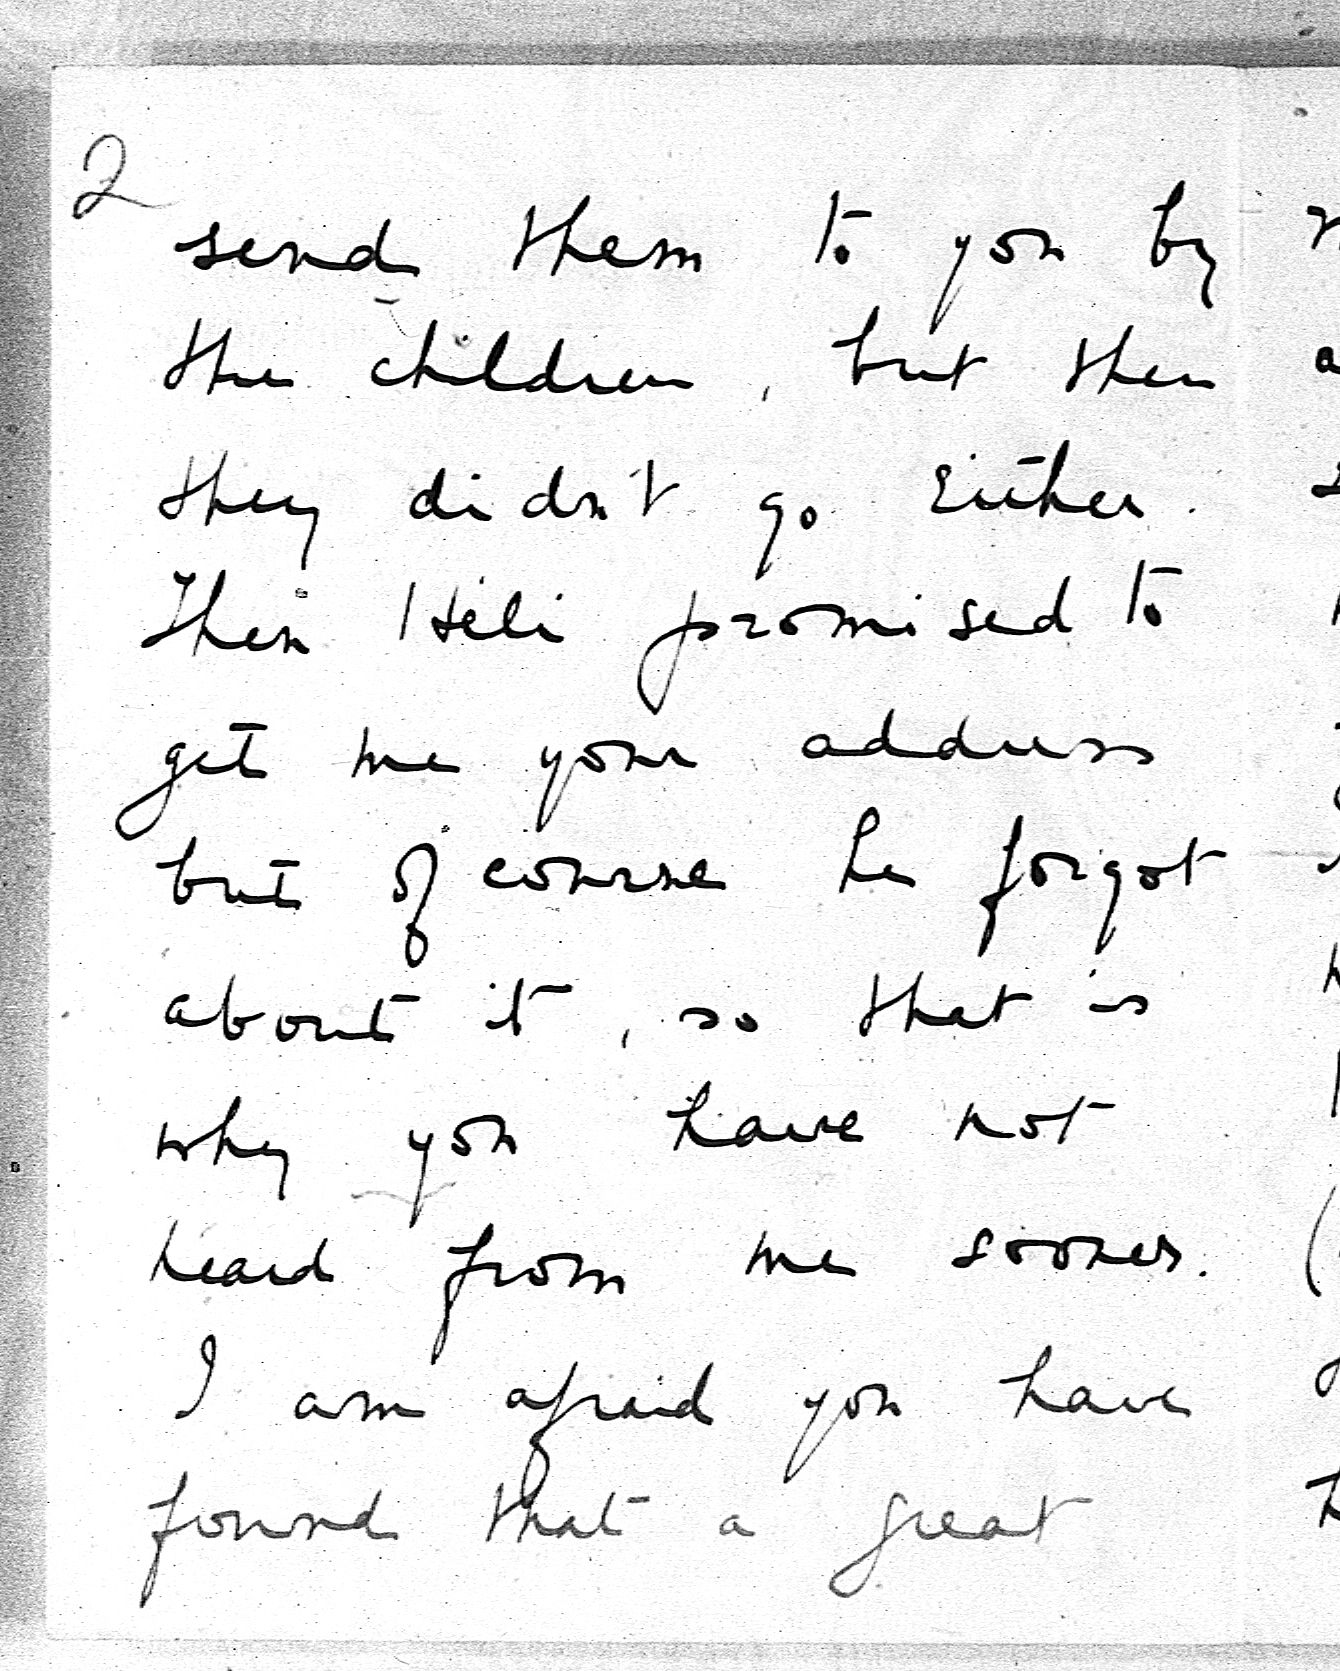 2
send them to you by
the children, but then
they didn't go either.
Then Heli promised to
get me your address
but of course he forgot
about it, so that is
why you have not
heard from me sooner.
I am afraid you have
found that a great